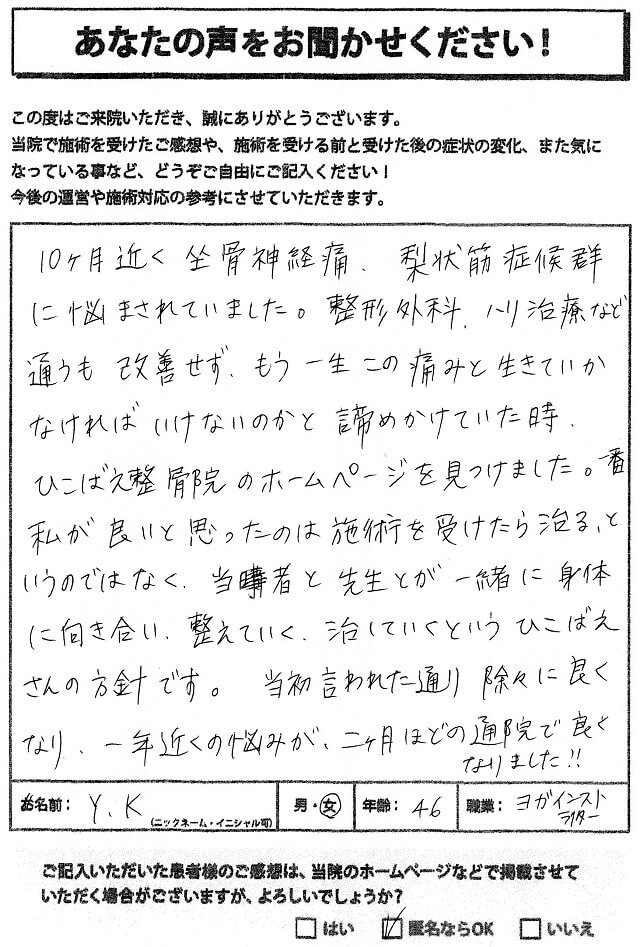 あなたの声をお聞かせください！
この度はご来院いただき、誠にありがとうございます。
当院で施術を受けたご感想や、施術を受ける前と受けた後の症状の変化、また気に
なっている事など、どうぞご自由にご記入ください！
今後の運営や施術対応の参考にさせていただきます。
10ヶ月近く坐骨神経痛、梨状筋症候群
に悩まされていました。整形外科、ハリ治療など
通うも改善せず、もう一生この痛みと生きていか
なければいけないのかと諦めかけていた時、
ひこばえ整骨院のホームページを見つけました。一番
私が良いと思ったのは施術を受けたら治る、と
いうのではなく、当事者と先生とが一緒に身体
に向き合い、整えていく、治していくというひこばえ
さんの方針です。当初言われた通り除々に良く
なり、一年近くの悩みが、二ヶ月ほどの通院で良く
なりました!!
お名前： Y.K （ニックネーム・イニシャル可） 男・女 年齢： 46 職業： ヨガインスト
ラクター
ご記入いただいた患者様のご感想は、当院のホームページなどで掲載させて
いただく場合がございますが、よろしいでしょうか？
□はい ☑匿名ならOK □いいえ